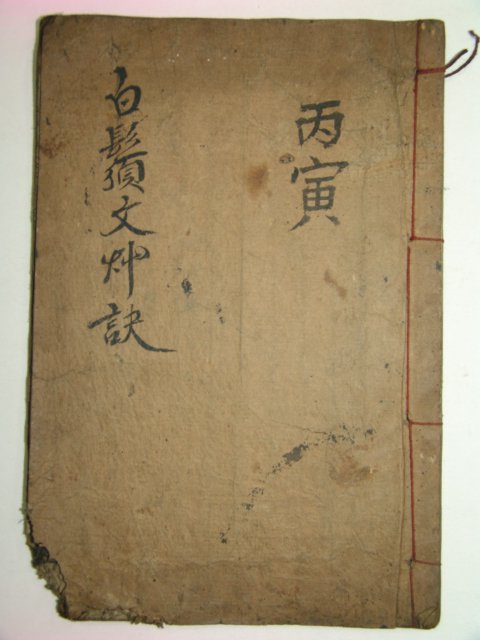 丙寅
白鬚文艸訣